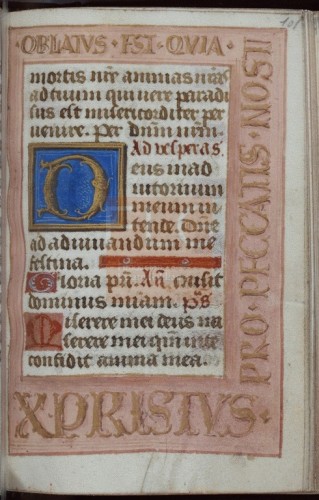 108
OBLATVS · EST · QVIA ·
mortis nr̄e animas nr̄as
ad tuum qui vere paradi
sus est misericorditer per
venire. per dn̄m nr̄m.
Ad vesperas.
Deus in ad
iutorium
meum in
tende. Dn̄e
ad adiuuandum me
festina.
Gloria pr̄i. An̄. clusit
dominus viam. p̄s
Miserere mei deus mi
serere mei qm̄ in te
confidit anima mea.
PRO · PECCATIS · NOSTI
XPRISTVS ·